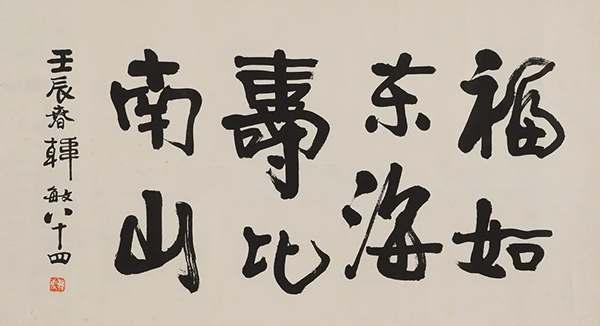 福如
东海
壽比
南山
壬辰春韓敏八十四